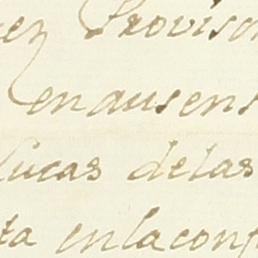 ez Provisor
en ausens
Lucas de las
ta en la conf